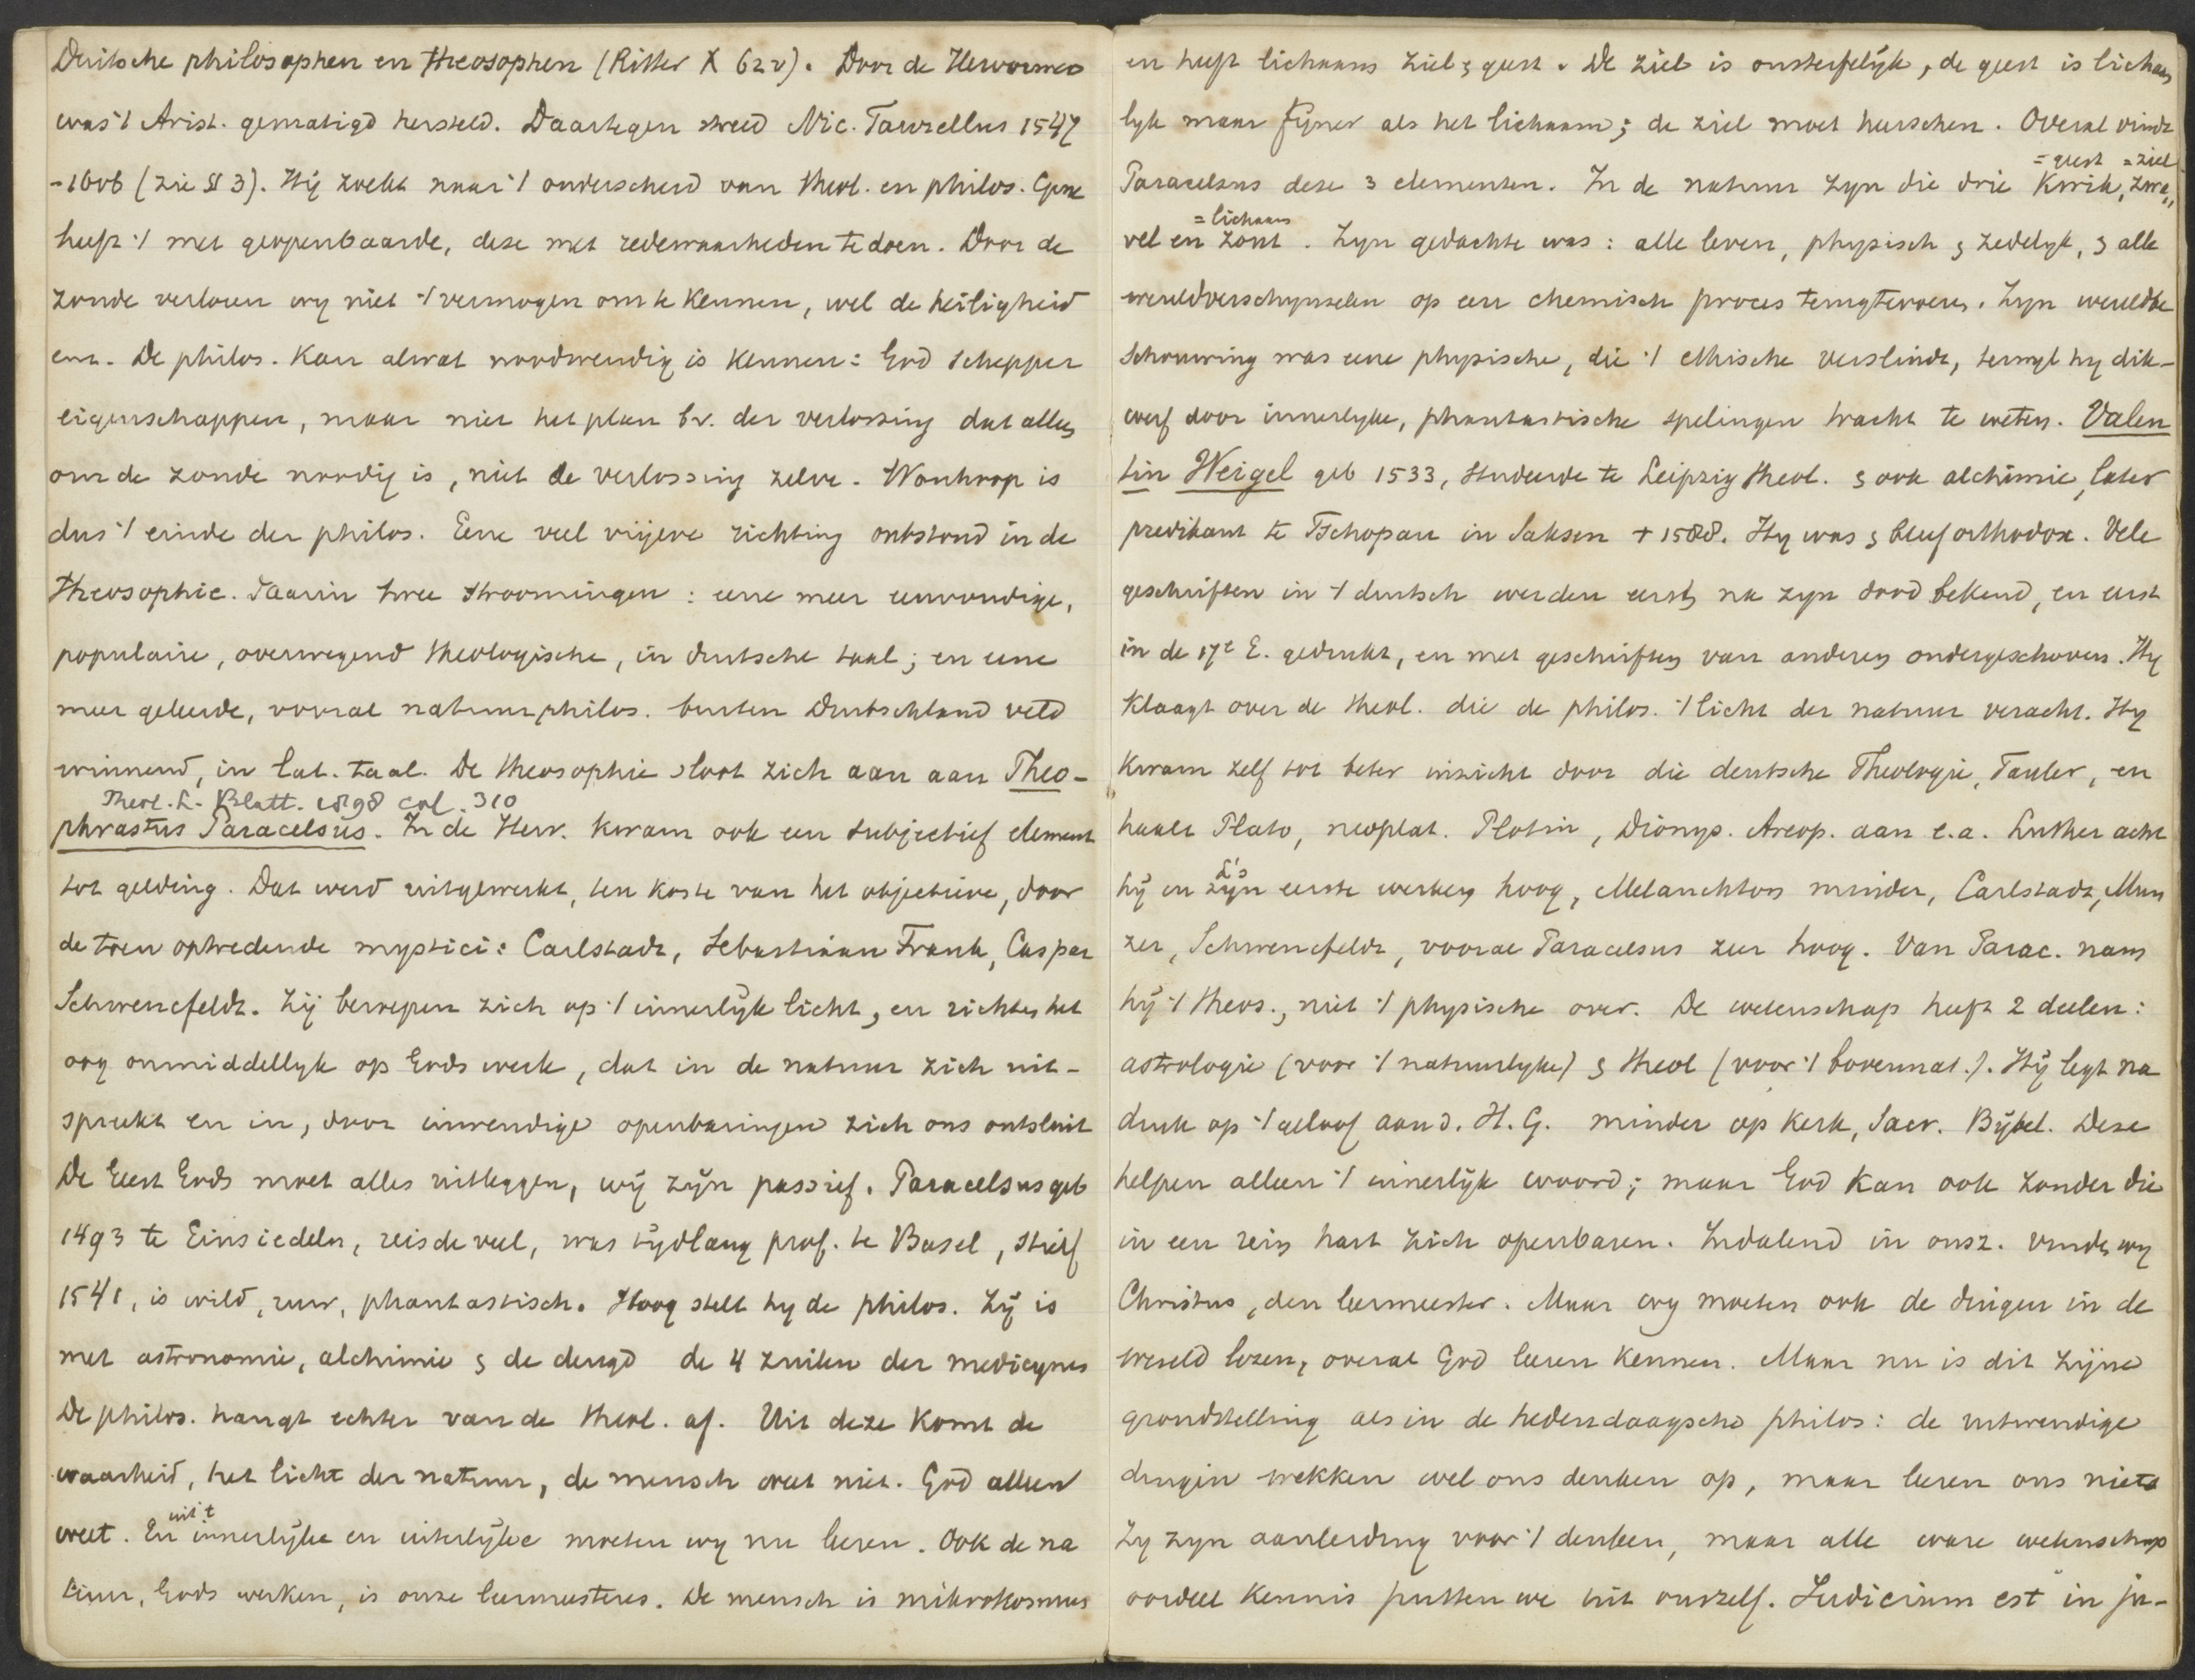 Duitsche philosophen en theosophen (Ritter X 62v). Door de Hervormers
was 't Arist. gematigd hersteld. Daartegen streed Nic. Taurellus 1547
-1606 (zie § 3). Hij zoekt naar 't onderscheid van theol. en philos. Gene
heeft 't met geopenbaarde, deze met redewaarheden te doen. Door de
zonde verloren wy niet 't vermogen om te kennen, wel de heiligheid
enz. De philos. kan alwat noodwendig is kennen: God Schepper
eigenschappen, maar niet het plan bv. der verlossing dat alleen
om de zonde noodig is, niet de verlossing zelve. Wanhoop is
dus 't einde der philos. Eene veel vrijere richting ontstond in de
theosophie. Daarin twee stroomingen: eene meer eenvoudige,
populaire, overwegend theologische, in duitsche taal; en eene
meer geleerde, vooral natuurphilos. buiten Duitschland veld
winnend, in lat. taal. De theosophie sloot zich aan aan Theo-
Theol. L. Blatt. 1898 col. 310
phrastus Paracelsus. In de Herv. kwam ook een subjectief element
tot gelding. Dat werd uitgewerkt, ten koste van het objectieve, door
de toen optredende mystici: Carlstadt, Sebastiaan Frank, Caspar
Schwencfeldt. Zij beroepen zich op 't innerlijk licht, en richten het
oog onmiddellyk op Gods werk, dat in de natuur zich uit-
spreekt en in, door inwendige openbaringen zich ons ontsluit
De Geest Gods moet alles uitleggen, wij zijn passief. Paracelsus geb
1493 te Einsiedeln, reisde veel, was tijdlang prof. te Basel, stierf
1541, is wild, ruw, phantastisch. Hoog stelt hy de philos. Zij is
met astronomie, alchimie & de deugd de 4 zuilen der medicynen
De philos. hangt echter van de theol. af. Uit deze komt de
waarheid, het licht der natuur, de mensch weet niet. God alleen
uit 't
weet. En innerlijke en uiterlijke moeten wy nu leeren. Ook de na
tuur, Gods werken, is onze leermeesteres. De mensch is mikrokosmus
en heeft lichaam ziel & geest. De ziel is onsterfelijk, de geest is lichame
lyk maar fijner als het lichaam; de ziel moet heerschen. Overal vindt
= geest = ziel
Paracelsus deze 3 elementen. In de natuur zyn die drie Kwik, zwa„
= lichaam
vel en zout. Zyn gedachte was: alle leven, physisch & zedelyk, & alle
wereldverschynselen op een chemisch proces terugtevoeren. Zyn wereldbe
schouwing was eene physische, die 't ethische verslindt, terwyl hy dik-
werf door innerlyke, phantastische spelingen tracht te weten. Valen
tin Weigel geb 1533, studeerde te Leipzig theol. & ook alchimie, later
predikant te Tschopau in Saksen + 1588. Hy was & bleef orthodox. Vele
geschriften in 't duitsch werden eerst na zyn dood bekend, en eerst
in de 17e E. gedrukt, en met geschriften van anderen ondergeschoven. Hy
klaagt over de theol. die de philos. 't licht der natuur veracht. Hy
kwam zelf tot beter inzicht door die deutsche Theologie, Tauler, en
haalt Plato, neoplat. Plotin, Dionys. Areop. aan e.a. Luther acht
L's
hij en zijn eerste werken hoog, Melanchton minder, Carlstadt, Mun
zer, Schwencfeldt, vooral Paracelsus zeer hoog. Van Parac. nam
hij 't theos., niet 't physische over. De wetenschap heeft 2 deelen:
astrologie (voor 't natuurlyke) & theol (voor 't bovennat.). Hij legt na
druk op 't geloof aan d. H. G. minder op kerk, Sacr. Bijbel. Deze
helpen alleen 't innerlijk woord; maar God kan ook zonder die
in een rein hart zich openbaren. Indalend in onsz. vinden wy
Christus, den leermeester. Maar wy moeten ook de dingen in de
wereld lezen, overal God leeren kennen. Maar nu is dit zijne
grondstelling als in de hedendaagsche philos: de uitwendige
dingen wekken wel ons denken op, maar leeren ons niets
Zy zyn aanleiding voor 't denken, maar alle ware wetenschap
oordeel kennis putten we uit onszelf. Judicium est in ju-